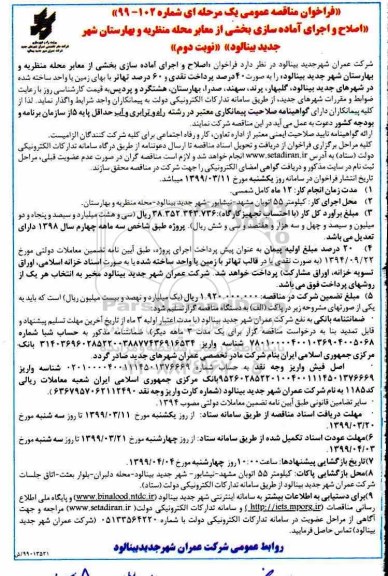 «فراخوان مناقصه عمومی یک مرحله ای شماره ۱۰۲-۹۹»
«اصلاح و اجرای آماده سازی بخشی از معابر محله منظریه و بهارستان شهر
جدید بینالود» «نوبت دوم»
شرکت عمران شهرجدید بینالود در نظر دارد فراخوان «اصلاح و اجرای آماده سازی بخشی از معابر محله منظریه و
بهارستان شهر جدید بینالود» را به صورت ۴۰ درصد پرداخت نقدی و ۶۰ درصد تهاتر با بهای زمین یا واحد ساخته شده
در شهرهای جدید بینالود، گلبهار، پرند، سهند، صدرا، بهارستان، هشتگرد و پردیس به قیمت کارشناسی روز با رعایت
ضوابط و مقررات شهرهای جدید، از طریق سامانه تدارکات الکترونیکی دولت به پیمانکاران واجد شرایط واگذار نماید. لذا از
کلیه پیمانکاران دارای گواهینامه صلاحیت پیمانکاری معتبر در رشته راه و ترابری و آب حداقل پایه ۵ از سازمان برنامه و
بودجه کشور دعوت به عمل می آید در این مناقصه شرکت نمایند.
ارائه گواهینامه تایید صلاحیت ایمنی معتبر از اداره تعاون، کار و رفاه اجتماعی برای کلیه شرکت کنندگان الزامیست.
کلیه مراحل برگزاری فراخوان از دریافت و تحویل اسناد مناقصه تا ارسال دعوتنامه از طریق درگاه سامانه تدارکات الکترونیکی
دولت (ستاد) به آدرس www.setadiran.ir انجام خواهد شد و لازم است مناقصه گران در صورت عدم عضویت قبلی، مراحل
ثبت نام در سایت مذکور و دریافت گواهی امضای الکترونیکی را جهت شرکت در مناقصه محقق سازند.
تاریخ انتشار فراخوان در سامانه روز یکشنبه مورخ ۱۳۹۹/۰۳/۱۱ میباشد.
۱. مدت زمان انجام کار: ۱۲ ماه کامل شمسی.
۲. محل اجرای کار: کیلومتر ۵۵ اتوبان مشهد-نیشابور-شهر جدید بینالود-محله منظریه و بهارستان.
۳. مبلغ برآورد کل کار (با احتساب تجهیز کارگاه): ۳۸.۳۵۲.۳۴۳.۷۳۶ ریال (سی و هشت میلیارد و سیصد و پنجاه و دو
میلیون و سیصد و چهل و سه هزار و هفتصد و سی و شش ریال). پروژه طبق شاخص سه ماهه چهارم سال ۱۳۹۸ دارای
تعدیل می باشد
۴. ۲۰ درصد مبلغ اولیه پیمان به عنوان پیش پرداخت اجرای پروژه، طبق آیین نامه تضمین معاملات دولتی مورخ
۱۳۹۴/۰۹/۲۲ (به صورت نقدی یا در قالب تهاتر با زمین یا واحد ساخته شده یا به صورت اسناد خزانه اسلامی، اوراق
تسویه خزانه، اوراق مشارکت) پرداخت خواهد شد. شرکت عمران شهر جدید بینالود مخیر به انتخاب هر یک از
روشهای پرداخت فوق می باشد.
۵. مبلغ تضمین شرکت در مناقصه: ۱.۹۲۰.۰۰۰.۰۰۰ ریال (یک میلیارد و نهصد و بیست میلیون ریال) است که باید به
یکی از صورتهای مشروحه زیر در پاکت (الف) به دستگاه مناقصه گزار تسلیم شود.
- ضمانتنامه بانکی به نفع شرکت عمران شهر جدید بینالود (با مدت اعتبار اولیه ۳ ماه از تاریخ آخرین مهلت تسلیم پیشنهاد و
قابل تمدید بنا به درخواست مناقصه گزار برای یک مدت ۳ ماهه دیگر). ضمانتنامه مذکور به حساب شبا شماره
مرکزی جمهوری اسلامی ایران بنام شرکت مادر تخصصی عمران شهرهای جدید صادر گردد.
به نام شرکت عمران شهر جدید بینالود
- سایر تضامین قانونی طبق آیین نامه تضمین معاملات دولتی مصوب ۱۳۹۴.
مهلت دریافت اسناد مناقصه از طریق سامانه ستاد: از روز یکشنبه مورخ ۱۳۹۹/۰۳/۱۱ تا روز سه شنبه مورخ
۱۳۹۹/۰۳/۲۰
۶)مهلت عودت اسناد تکمیل شده از طریق سامانه ستاد: از روز چهارشنبه مورخ ۱۳۹۹/۰۳/۲۱ تا روز سه شنبه مورخ
۱۳۹۹/۰۴/۰۳
۷)تاریخ بازگشایی پیشنهادها: ساعت ۱۰:۰۰ روز چهارشنبه مورخ ۱۳۹۹/۰۴/۰۴
۸)محل بازگشایی پاکات: کیلومتر ۵۵ اتوبان مشهد-نیشابور- شهر جدید بینالود-محله دلبران-بلوار بعثت-اتاق جلسات
شرکت عمران شهر جدید بینالود و از طریق سامانه تدارکات الکترونیکی دولت (ستاد).
۹)برای دستیابی به اطلاعات بیشتر به سامانه اینترنتی شهر جدید بینالود (www.binalood.ntdc.ir) و پایگاه ملی اطلاع
رسانی مناقصات (http://iets.mporg.ir) و سامانه تدارکات الکترونیکی دولت (www.setadiran.ir) مراجعه و جهت
آگاهی از مراحل عضویت در سامانه تدارکات الکترونیکی دولت با شماره ۰۵۱۳۳۵۶۴۲۲۰ (شرکت عمران شهر جدید
بینالود) تماس حاصل فرمایید.
روابط عمومی شرکت عمران شهرجدیدبینالود